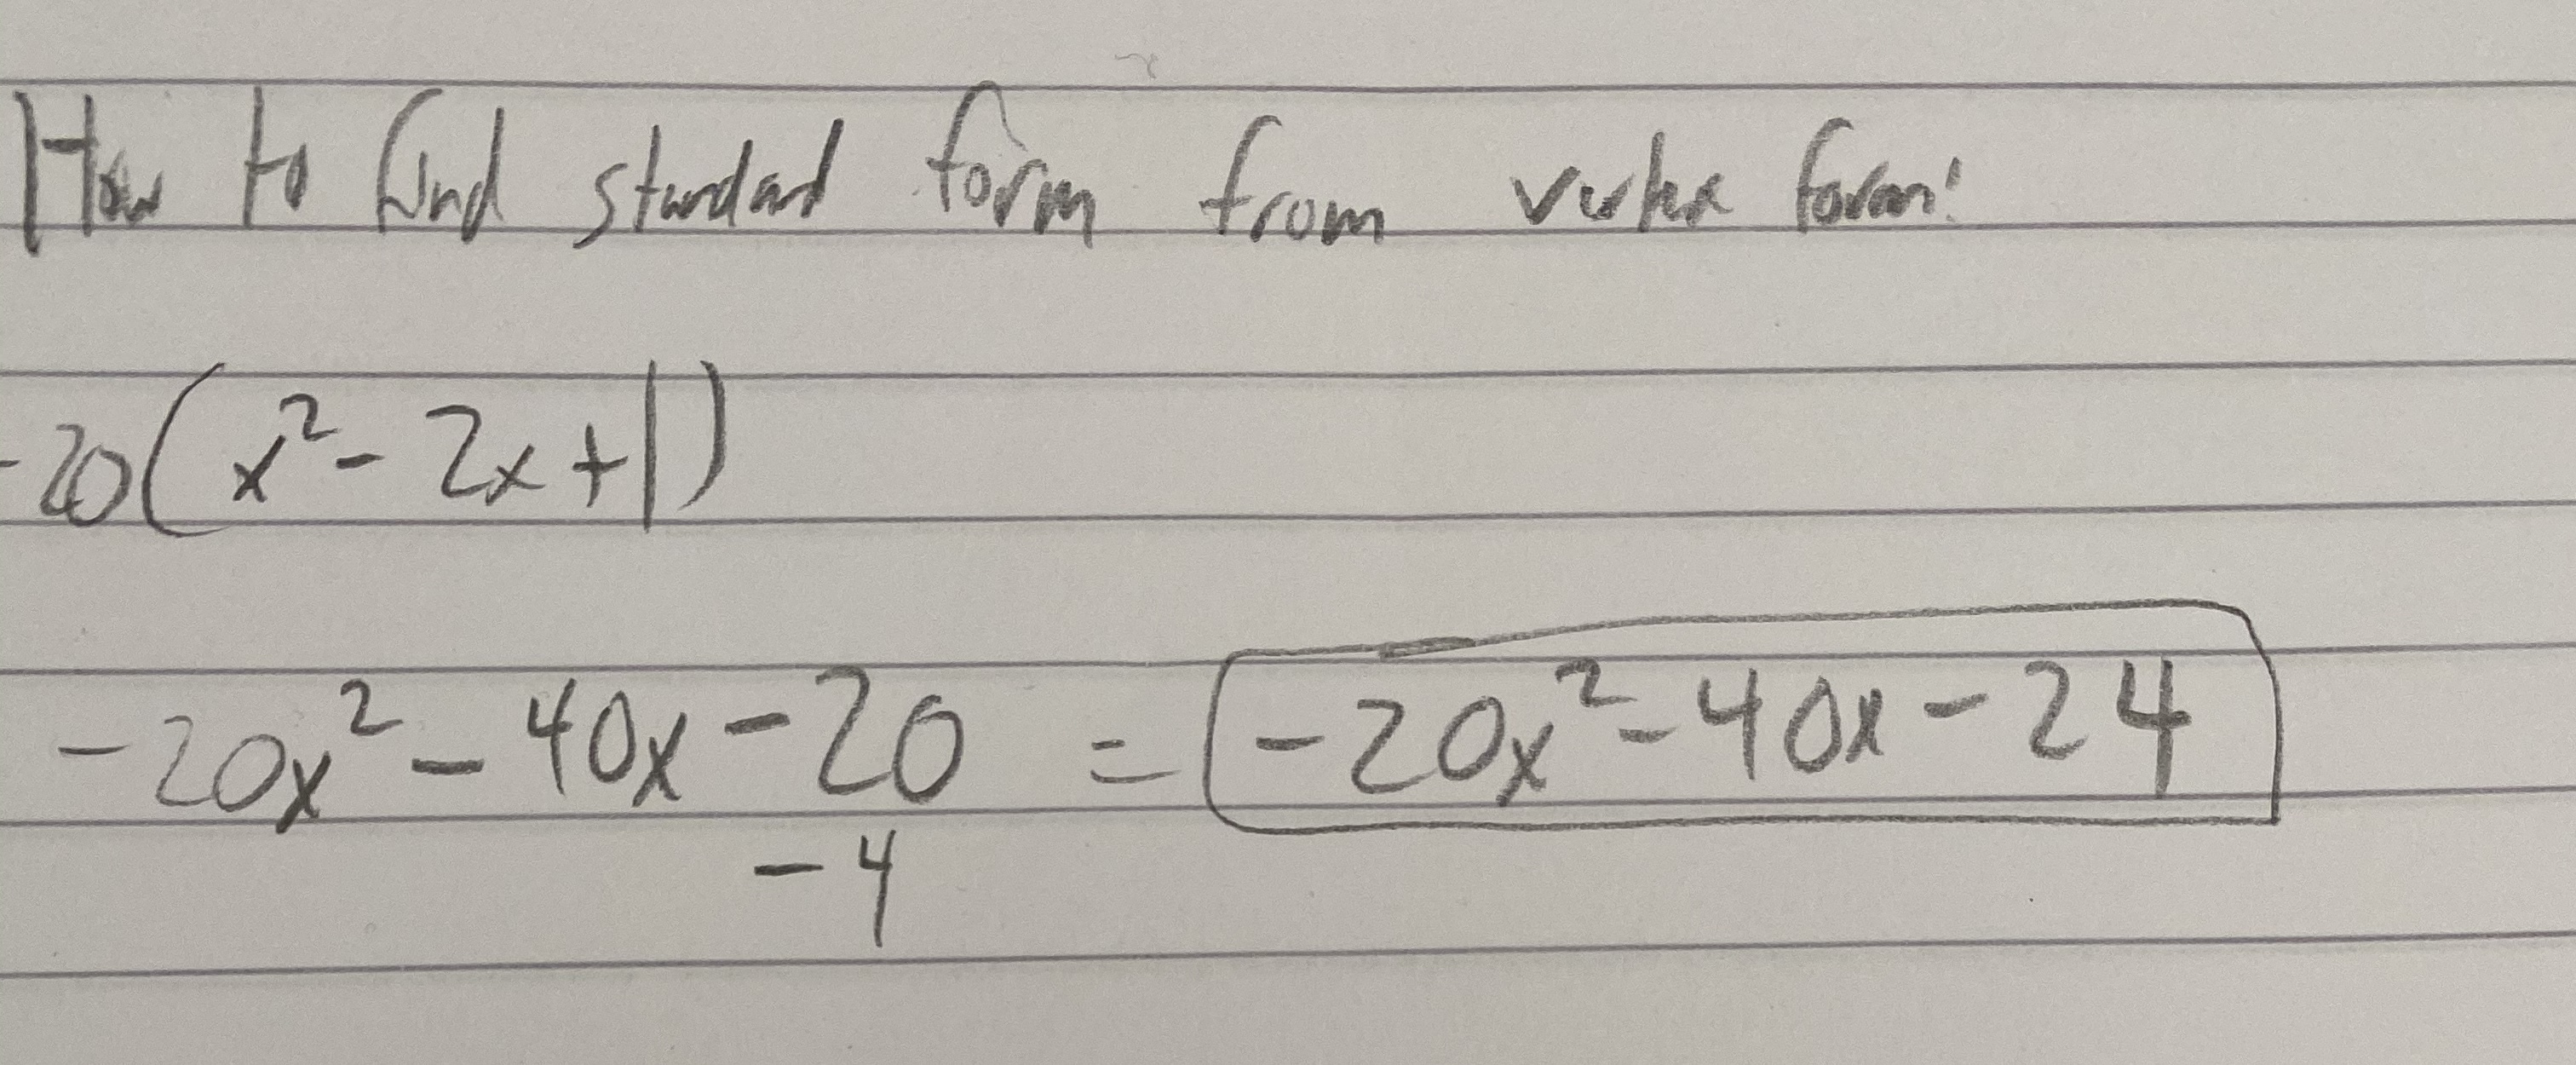 How to find standard form from vertex form:
-20(x²- 2x+1)
-20x² - 40x - 20 = -20x² - 40x - 24
- 4